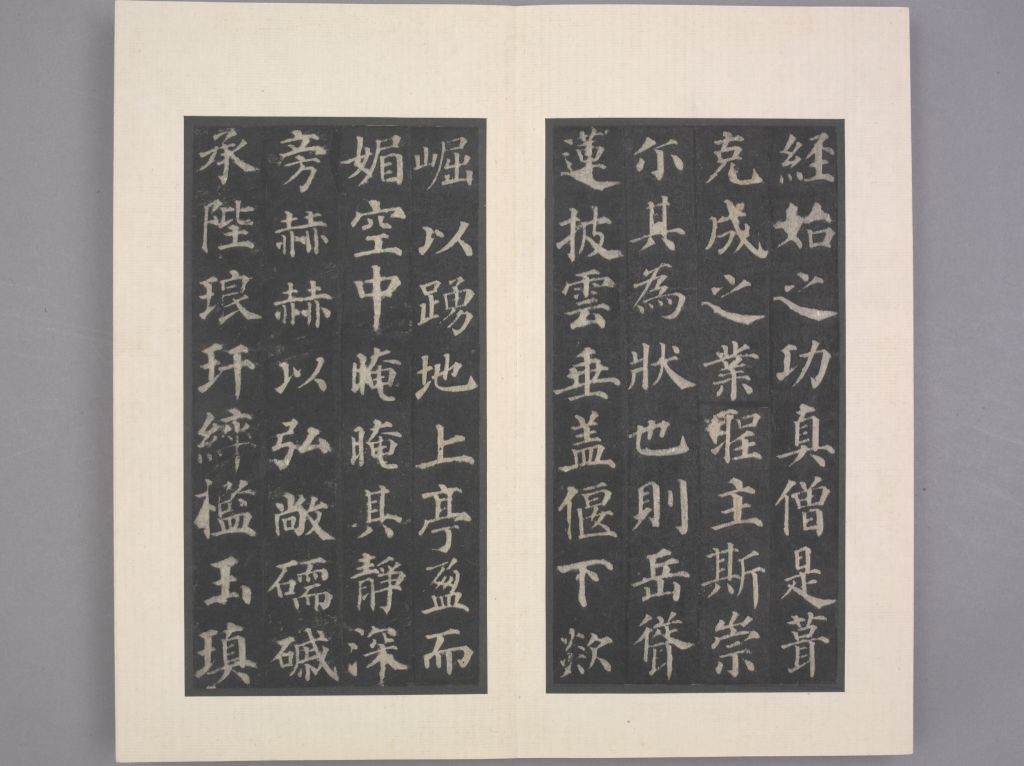 經始之功真僧是葺
克成之業聖主斯崇
尒其為狀也則岳聳
蓮披雲垂盖偃下欻
崛以踴地上亭盈而
媚空中晻晻其靜深
旁赫赫以弘敞礝磩
承陛琅玕綷檻玉瑱